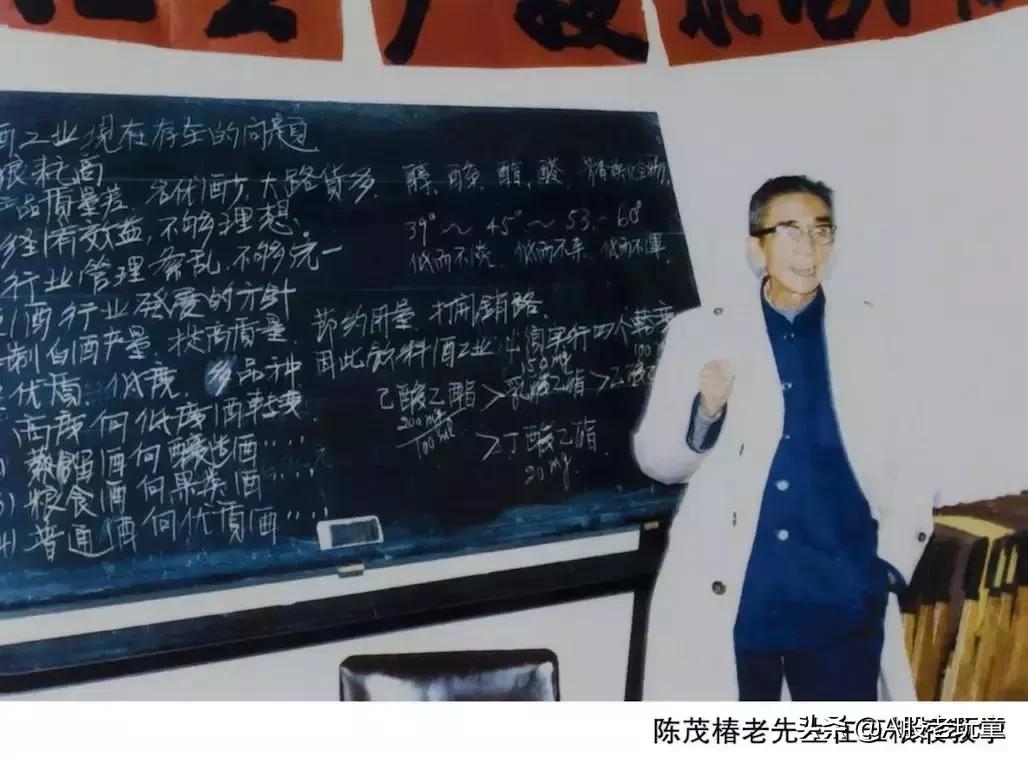 酒工业现在存在的问题
粮耗高
产品质量差 名优酒少,大路货多
经济有效益,不够理想
行业管理紊乱,不够统一
酒行业发展的方针
制白酒产量,提高质量
优质、低度、多品种
高度向低度酒转变
蒸馏酒向酿造酒
粮食酒向果类酒
4)普通酒向优质酒
醇、醛、酯、酸
39°~45°~53~60°
低而不
低而不
低而不
节约用量,打开销路
因此饮料酒工业必须实行四个转变
己酸乙酯>乳酸乙酯>乙酸乙
200mg/100ml
150mg
100m
>丁酸乙酯
20mg
陈茂椿老先生在
头条@A股老玩童